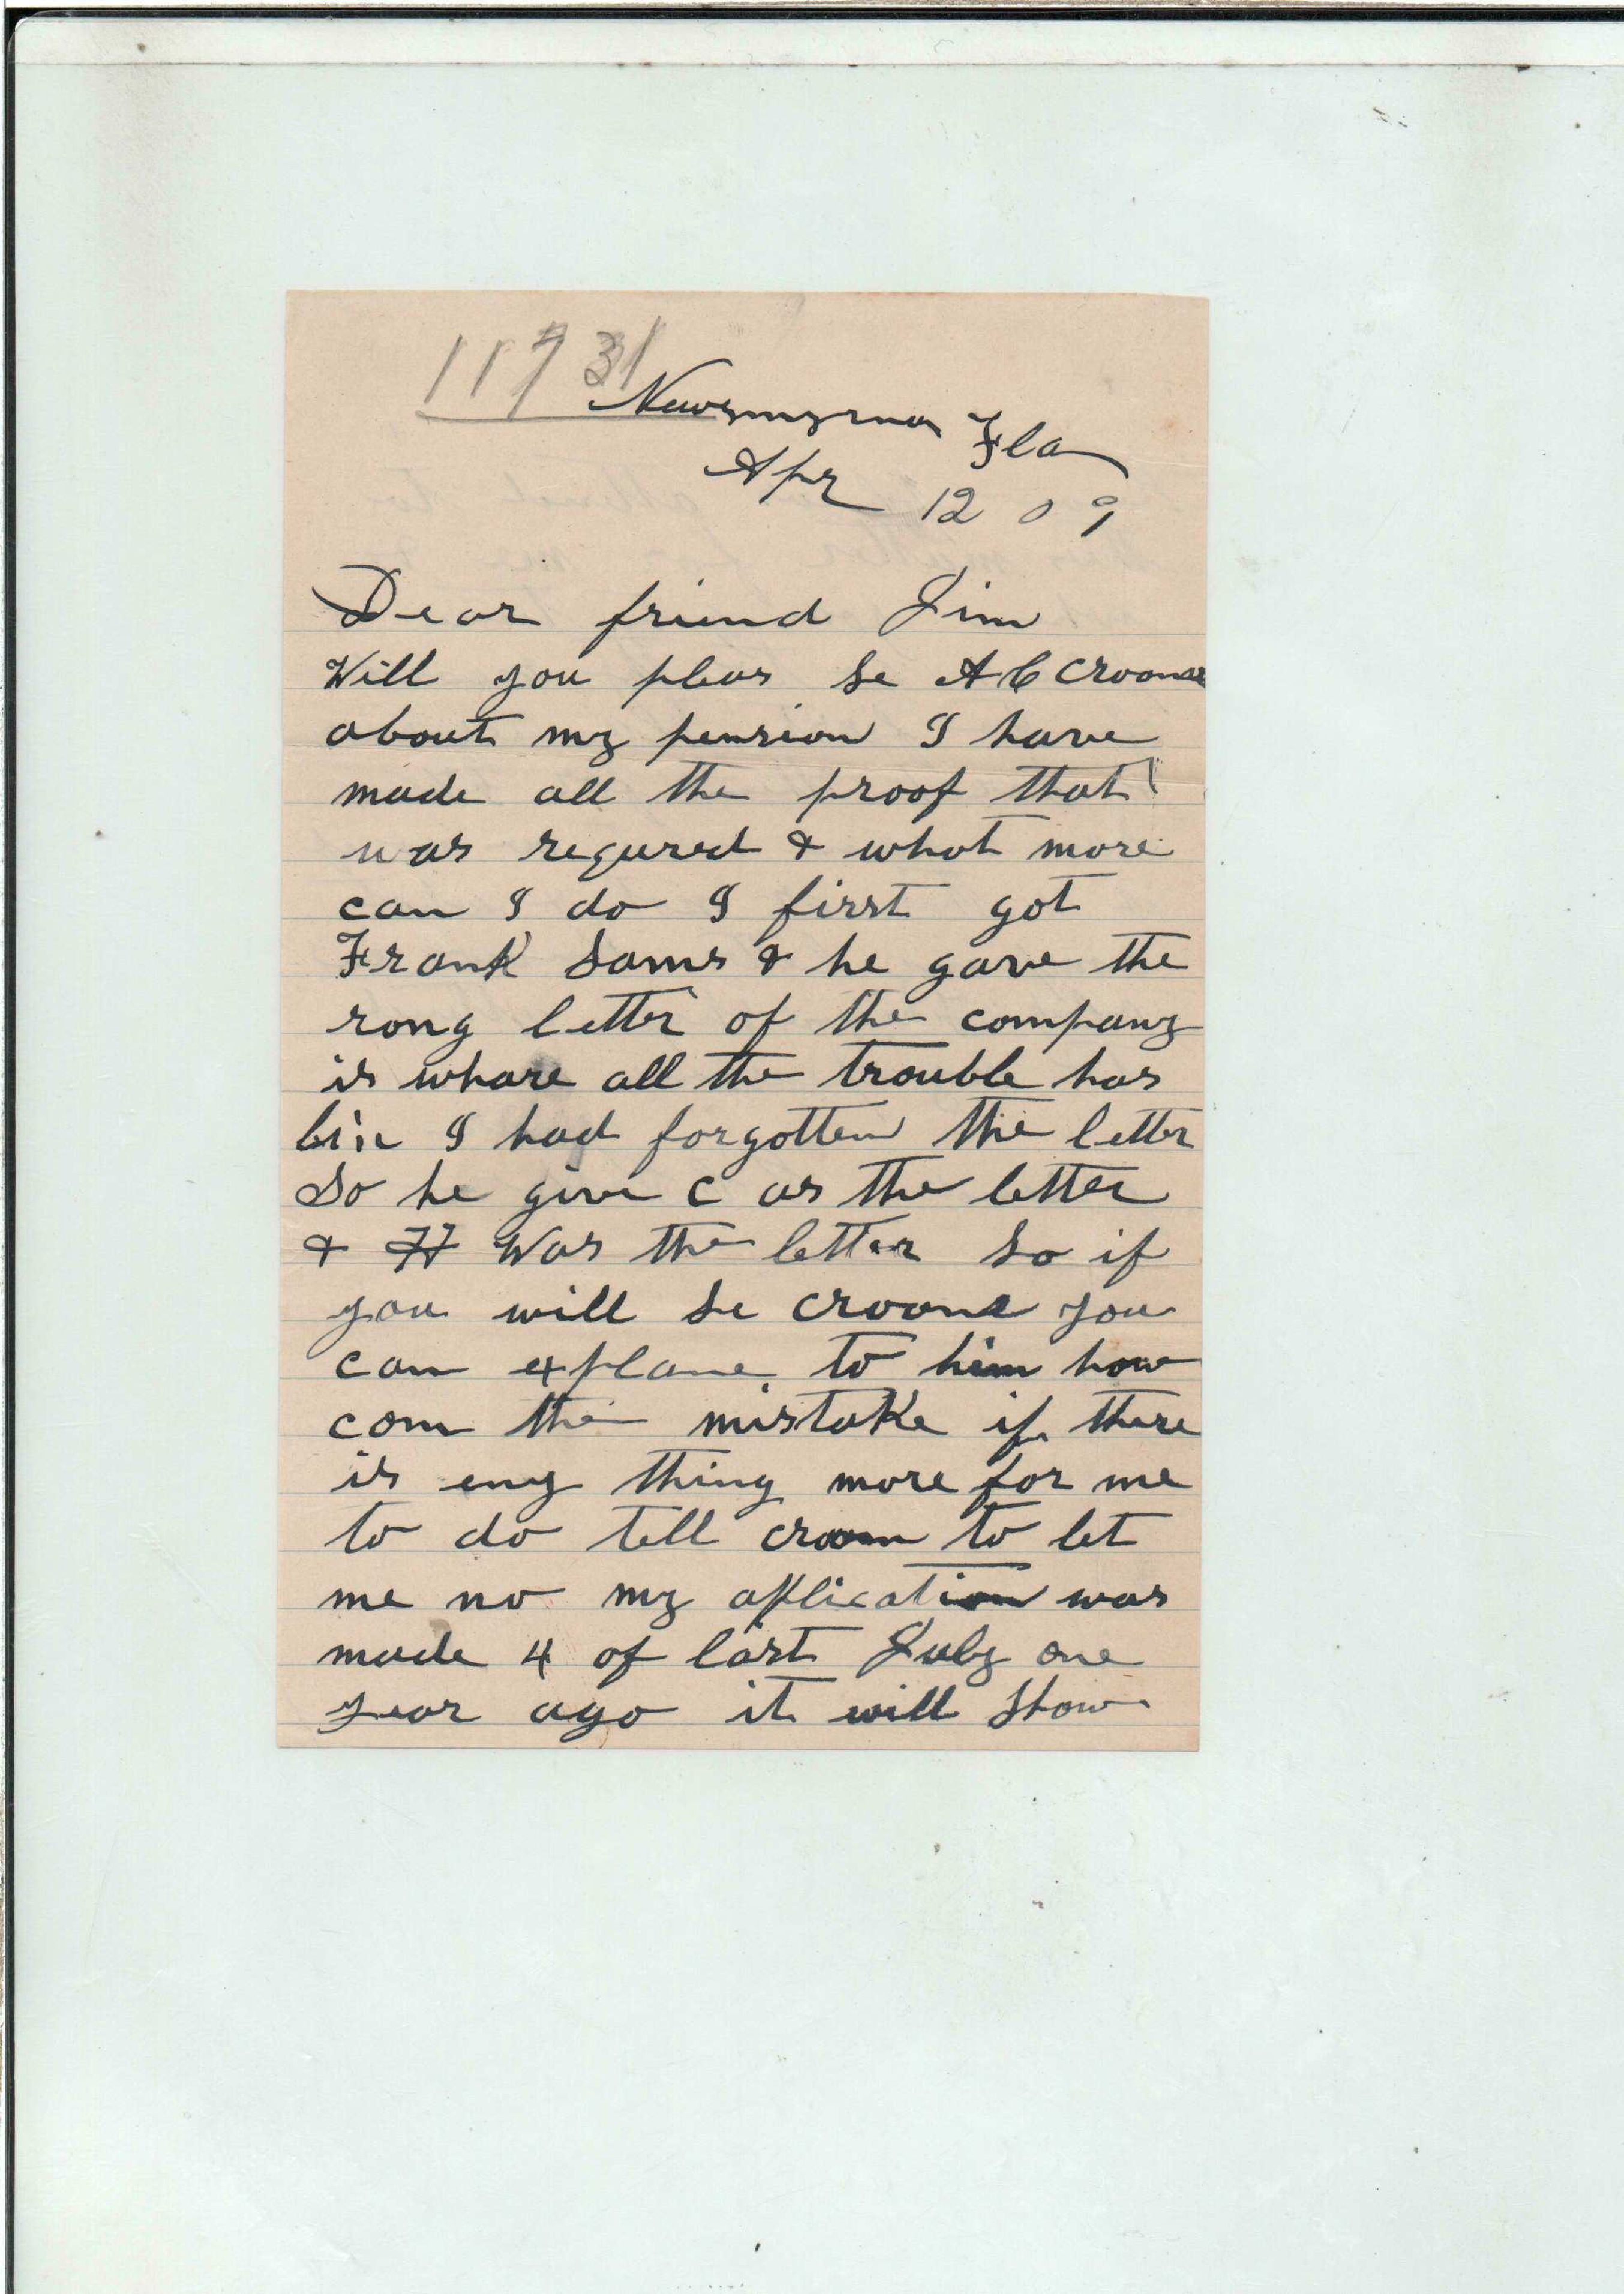 11731
Newsmyrna Fla
Apr 12 09
Dear friend Jim
Will you pleas se A C Croome
about my pension I have
made all the proof that
was requred & what more
can I do I first got
Frank Sams & he gave the
rong letter of the company
is whare all the trouble has
bin I had forgotten the letter
So he give C as the letter
& H Was the letter so if
you will se croome you
can explane to him how
com the mistake if there
is eny thing more for me
to do tell croom to let
me no my aplication was
made 4 of last July one
year ago it will show